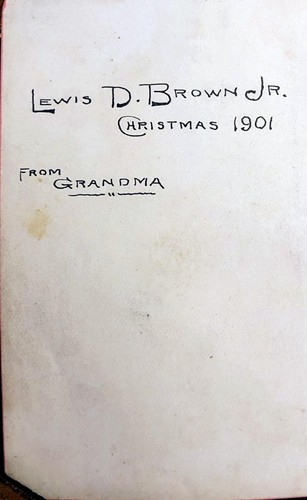 Lewis D. Brown Jr.
Christmas 1901
From
Grandma